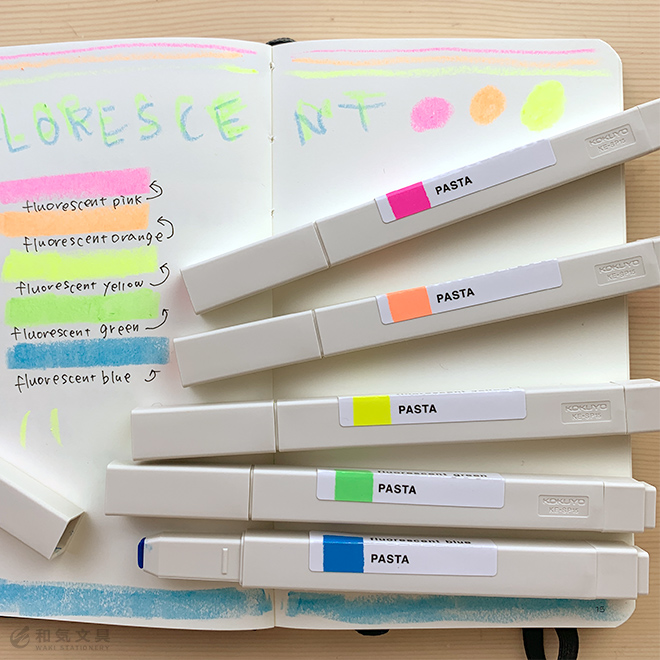 LORESCENT
fluorescent pink
fluorescent orange
fluorescent yellow
fluorescent green
fluorescent blue
PASTA
KOKUYO
KE-SP15
PASTA
KOKUYO
KE-SP15
PASTA
KOKUYO
fluorescent green
PASTA
KOKUYO
fluorescent blue
PASTA
15
和気文具
WAKI STATIONERY